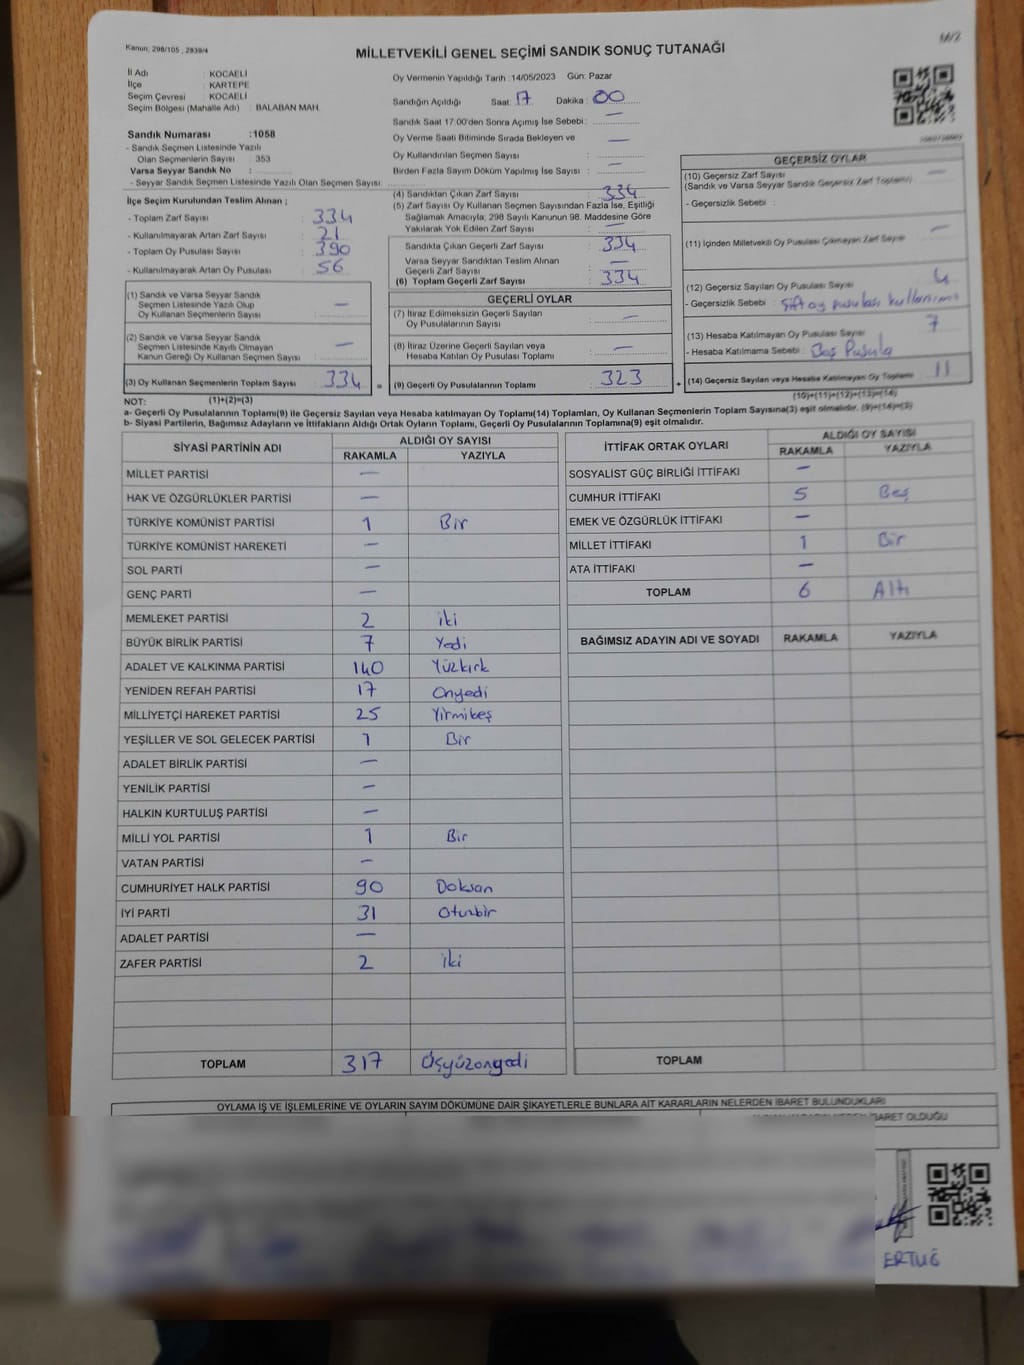 Kanun, 298/105 , 2839/4
M/2
MİLLETVEKİLİ GENEL SEÇİMİ SANDIK SONUÇ TUTANAĞI
İl Adı : KOCAELİ
İlçe : KARTEPE
Seçim Çevresi : KOCAELİ
Seçim Bölgesi (Mahalle Adı) : BALABAN MAH.
Sandık Numarası :1058
- Sandık Seçmen Listesinde Yazılı
Olan Seçmenlerin Sayısı : 353
Varsa Seyyar Sandık No :
- Seyyar Sandık Seçmen Listesinde Yazılı Olan Seçmen Sayısı:
İlçe Seçim Kurulundan Teslim Alınan ;
- Toplam Zarf Sayısı : 334
- Kullanılmayarak Artan Zarf Sayısı : 21
- Toplam Oy Pusulası Sayısı : 390
- Kullanılmayarak Artan Oy Pusulası : 56
(1) Sandık ve Varsa Seyyar Sandık
Seçmen Listesinde Yazılı Olup
Oy Kullanan Seçmenlerin Sayısı : —
(2) Sandık ve Varsa Seyyar Sandık
Seçmen Listesinde Kayıtlı Olmayan
Kanun Gereği Oy Kullanan Seçmen Sayısı : —
(3) Oy Kullanan Seçmenlerin Toplam Sayısı : 334 =
Oy Vermenin Yapıldığı Tarih :14/05/2023 Gün: Pazar
Sandığın Açıldığı Saat 17 Dakika : 00
Sandık Saat 17:00'den Sonra Açımış İse Sebebi : —
Oy Verme Saati Bitiminde Sırada Bekleyen ve
Oy Kullandırılan Seçmen Sayısı : —
Birden Fazla Sayım Döküm Yapılmış İse Sayısı : —
(4) Sandıktan Çıkan Zarf Sayısı : 334
(5) Zarf Sayısı Oy Kullanan Seçmen Sayısından Fazla İse, Eşitliği
Sağlamak Amacıyla; 298 Sayılı Kanunun 98. Maddesine Göre
Yakılarak Yok Edilen Zarf Sayısı : —
Sandıkta Çıkan Geçerli Zarf Sayısı : 334
Varsa Seyyar Sandıktan Teslim Alınan
Geçerli Zarf Sayısı : —
(6) Toplam Geçerli Zarf Sayısı : 334
GEÇERLİ OYLAR
(7) İtiraz Edilmeksizin Geçerli Sayılan
Oy Pusulalarının Sayısı : —
(8) İtiraz Üzerine Geçerli Sayılan veya
Hesaba Katılan Oy Pusulası Toplamı : —
(9) Geçerli Oy Pusulalarının Toplamı : 323 +
GEÇERSİZ OYLAR
(10) Geçersiz Zarf Sayısı : —
(Sandık ve Varsa Seyyar Sandık Geçersiz Zarf Toplamı)
- Geçersizlik Sebebi :
(11) İçinden Milletvekili Oy Pusulası Çıkmayan Zarf Sayısı —
(12) Geçersiz Sayılan Oy Pusulası Sayısı : 4
- Geçersizlik Sebebi : Çift oy pusulası kullanımı
(13) Hesaba Katılmayan Oy Pusulası Sayısı 7
- Hesaba Katılmama Sebebi : Boş Pusula
(14) Geçersiz Sayılan veya Hesaba Katılmayan Oy Toplamı 11
NOT: (1)+(2)=(3) (10)+(11)+(12)+(13)=(14)
a- Geçerli Oy Pusulalarının Toplamı(9) ile Geçersiz Sayılan veya Hesaba katılmayan Oy Toplamı(14) Toplamları, Oy Kullanan Seçmenlerin Toplam Sayısına(3) eşit olmalıdır. (9)+(14)=(3)
b- Siyasi Partilerin, Bağımsız Adayların ve İttifakların Aldığı Ortak Oyların Toplamı, Geçerli Oy Pusulalarının Toplamına(9) eşit olmalıdır.
SİYASİ PARTİNİN ADI ALDIĞI OY SAYISI
RAKAMLA YAZIYLA
MİLLET PARTİSİ —
HAK VE ÖZGÜRLÜKLER PARTİSİ —
TÜRKİYE KOMÜNİST PARTİSİ 1 Bir
TÜRKİYE KOMÜNİST HAREKETİ —
SOL PARTİ —
GENÇ PARTİ —
MEMLEKET PARTİSİ 2 iki
BÜYÜK BİRLİK PARTİSİ 7 Yedi
ADALET VE KALKINMA PARTİSİ 140 Yüzkırk
YENİDEN REFAH PARTİSİ 17 Onyedi
MİLLİYETÇİ HAREKET PARTİSİ 25 Yirmibeş
YEŞİLLER VE SOL GELECEK PARTİSİ 1 Bir
ADALET BİRLİK PARTİSİ —
YENİLİK PARTİSİ —
HALKIN KURTULUŞ PARTİSİ —
MİLLİ YOL PARTİSİ 1 Bir
VATAN PARTİSİ —
CUMHURİYET HALK PARTİSİ 90 Doksan
İYİ PARTİ 31 Oturbir
ADALET PARTİSİ —
ZAFER PARTİSİ 2 iki
TOPLAM 317 Üçyüzonyedi
İTTİFAK ORTAK OYLARI ALDIĞI OY SAYISI
RAKAMLA YAZIYLA
SOSYALİST GÜÇ BİRLİĞİ İTTİFAKI —
CUMHUR İTTİFAKI 5 Beş
EMEK VE ÖZGÜRLÜK İTTİFAKI —
MİLLET İTTİFAKI 1 Bir
ATA İTTİFAKI —
TOPLAM 6 Altı
BAĞIMSIZ ADAYIN ADI VE SOYADI RAKAMLA YAZIYLA
TOPLAM
OYLAMA İŞ VE İŞLEMLERİNE VE OYLARIN SAYIM DÖKÜMÜNE DAİR ŞİKAYETLERLE BUNLARA AİT KARARLARIN NELERDEN İBARET BULUNDUKLARI
İBARET OLDUĞU
ERTUĞ